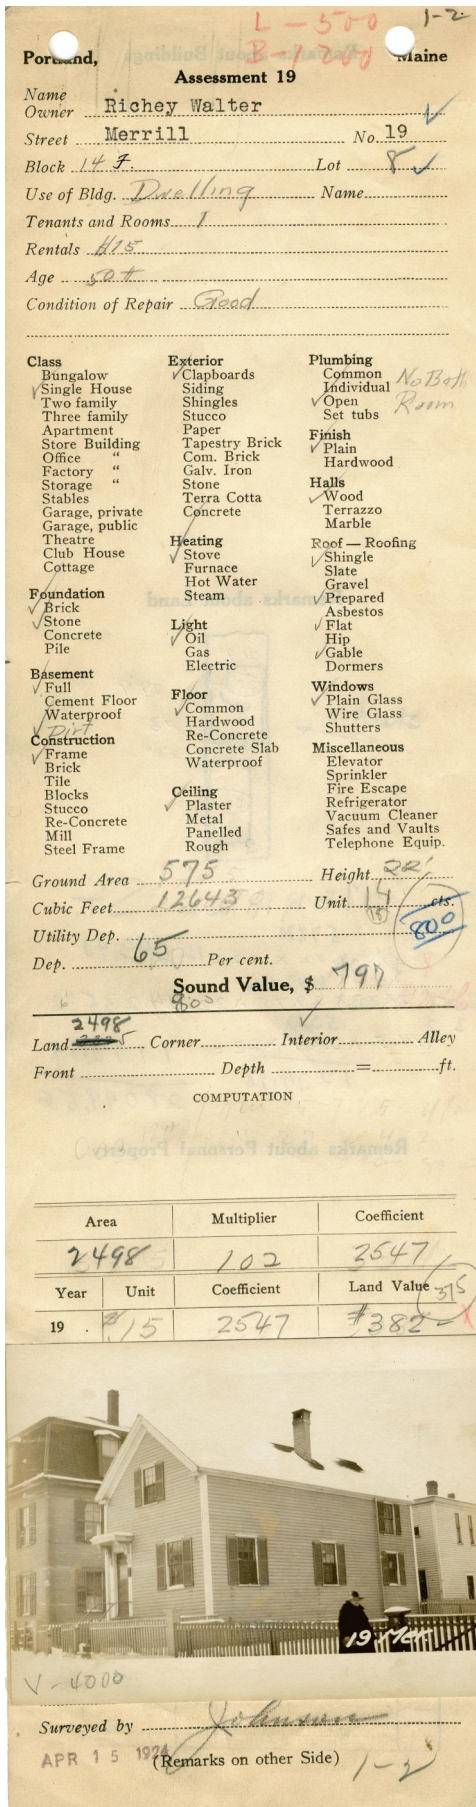 L - 500 1-2
B - 1200
Portland, Maine
Assessment 19
Name
Owner Richey Walter
Street Merrill No. 19
Block 14 F. Lot 8
Use of Bldg. Dwelling Name
Tenants and Rooms 1
Rentals $15
Age 50 +
Condition of Repair Good
Class
Bungalow
Single House
Two family
Three family
Apartment
Store Building
Office "
Factory "
Storage "
Stables
Garage, private
Garage, public
Theatre
Club House
Cottage
Foundation
Brick
Stone
Concrete
Pile
Basement
Full
Cement Floor
Waterproof
Dirt
Construction
Frame
Brick
Tile
Blocks
Stucco
Re-Concrete
Mill
Steel Frame
Exterior
Clapboards
Siding
Shingles
Stucco
Paper
Tapestry Brick
Com. Brick
Galv. Iron
Stone
Terra Cotta
Concrete
Heating
Stove
Furnace
Hot Water
Steam
Light
Oil
Gas
Electric
Floor
Common
Hardwood
Re-Concrete
Concrete Slab
Waterproof
Ceiling
Plaster
Metal
Panelled
Rough
Plumbing
Common No Bath
Individual Room
Open
Set tubs
Finish
Plain
Hardwood
Halls
Wood
Terrazzo
Marble
Roof — Roofing
Shingle
Slate
Gravel
Prepared
Asbestos
Flat
Hip
Gable
Dormers
Windows
Plain Glass
Wire Glass
Shutters
Miscellaneous
Elevator
Sprinkler
Fire Escape
Refrigerator
Vacuum Cleaner
Safes and Vaults
Telephone Equip.
Ground Area 575 Height 22'
Cubic Feet 12643 Unit 14 cts.
Utility Dep. 800
Dep. 65 Per cent.
Sound Value, $ 797
800
2498
Land Corner Interior Alley
Front Depth = ft.
COMPUTATION
Area Multiplier Coefficient
2498 102 2547
Year Unit Coefficient Land Value 375
19 . $.15 2547 $382
19 Mer
V - 4000
Surveyed by Johnson
APR 15 1924
(Remarks on other Side) 1-2